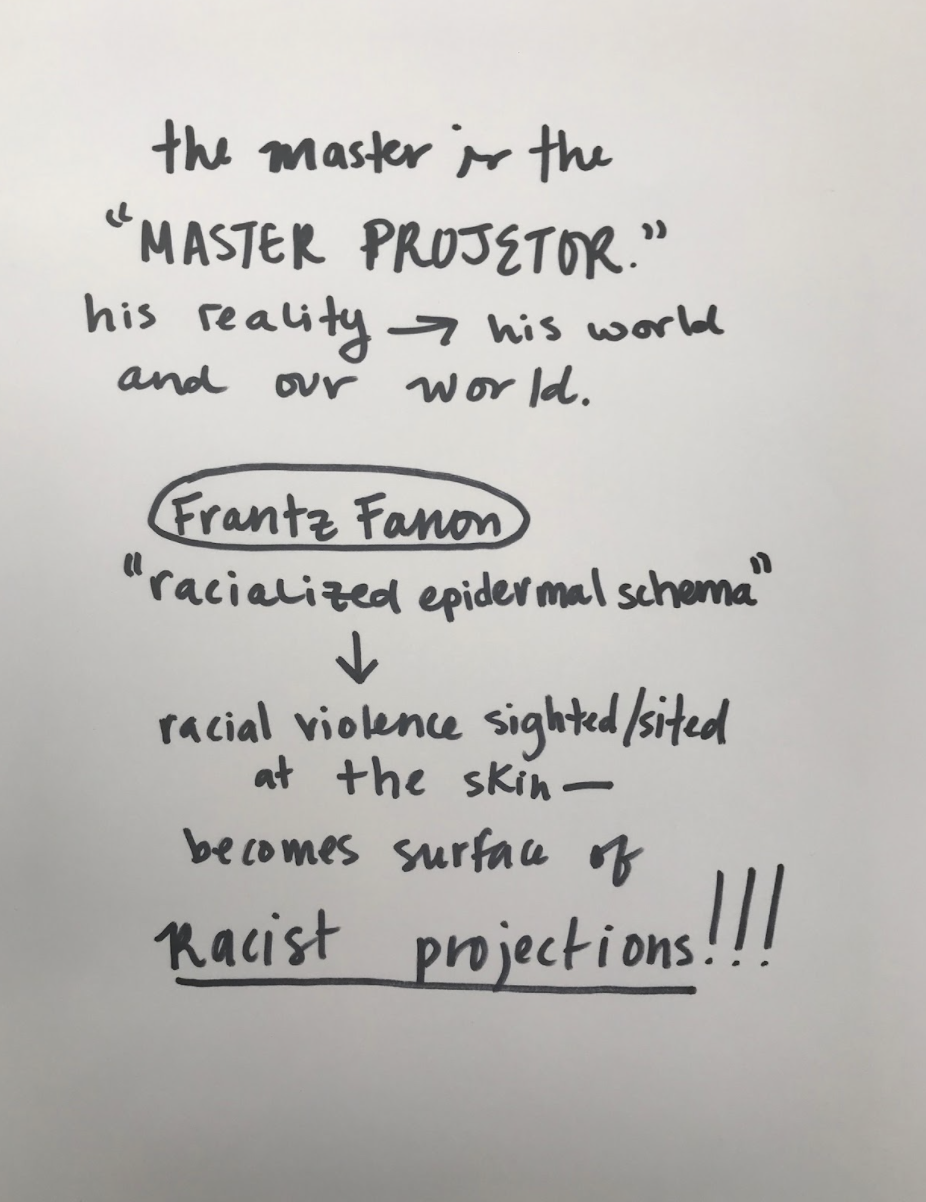 the master is the
"MASTER PROJETOR."
his reality → his world
and our world.
Frantz Fanon
"racialized epidermal schema"
↓
racial violence sighted/sited
at the skin —
becomes surface of
Racist projections!!!